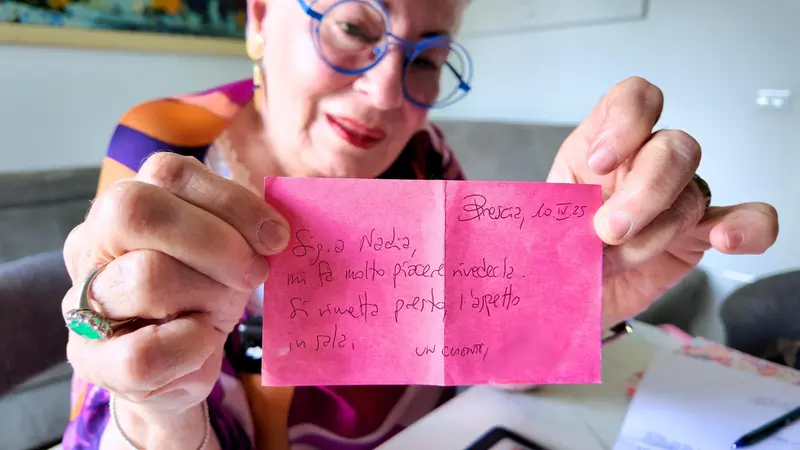 Brescia, 10 IV 25
Sig.a Nadia,
mi fa molto piacere rivederla.
Si rimetta presto, l'aspetto
in sala.
un cliente,